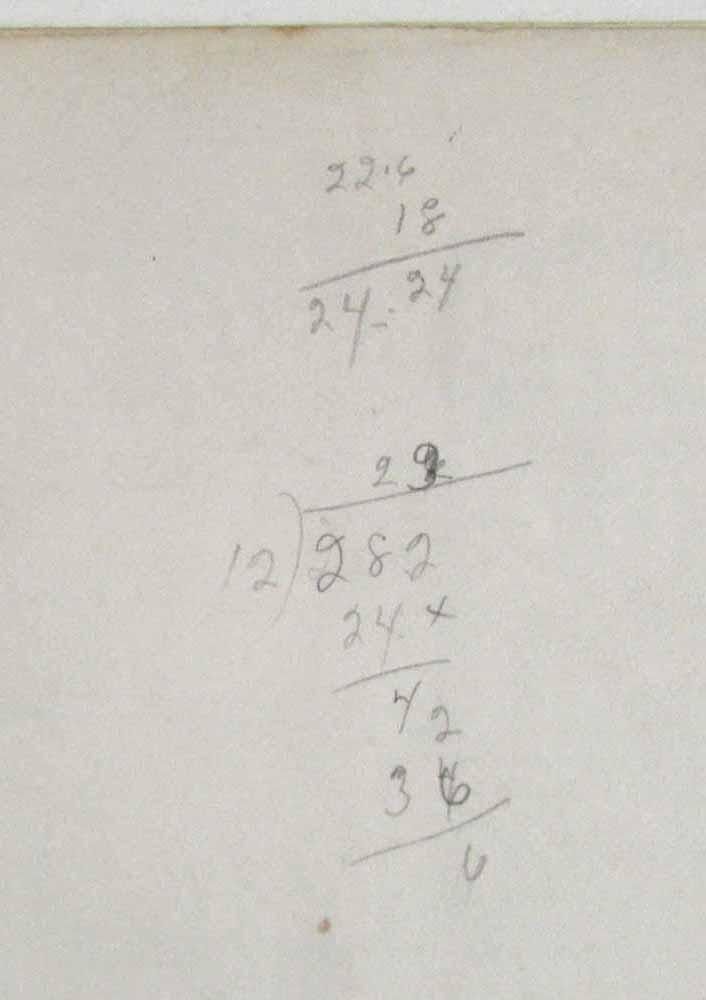 22.6
18
24-24
23
12)282
24 x
42
36
6